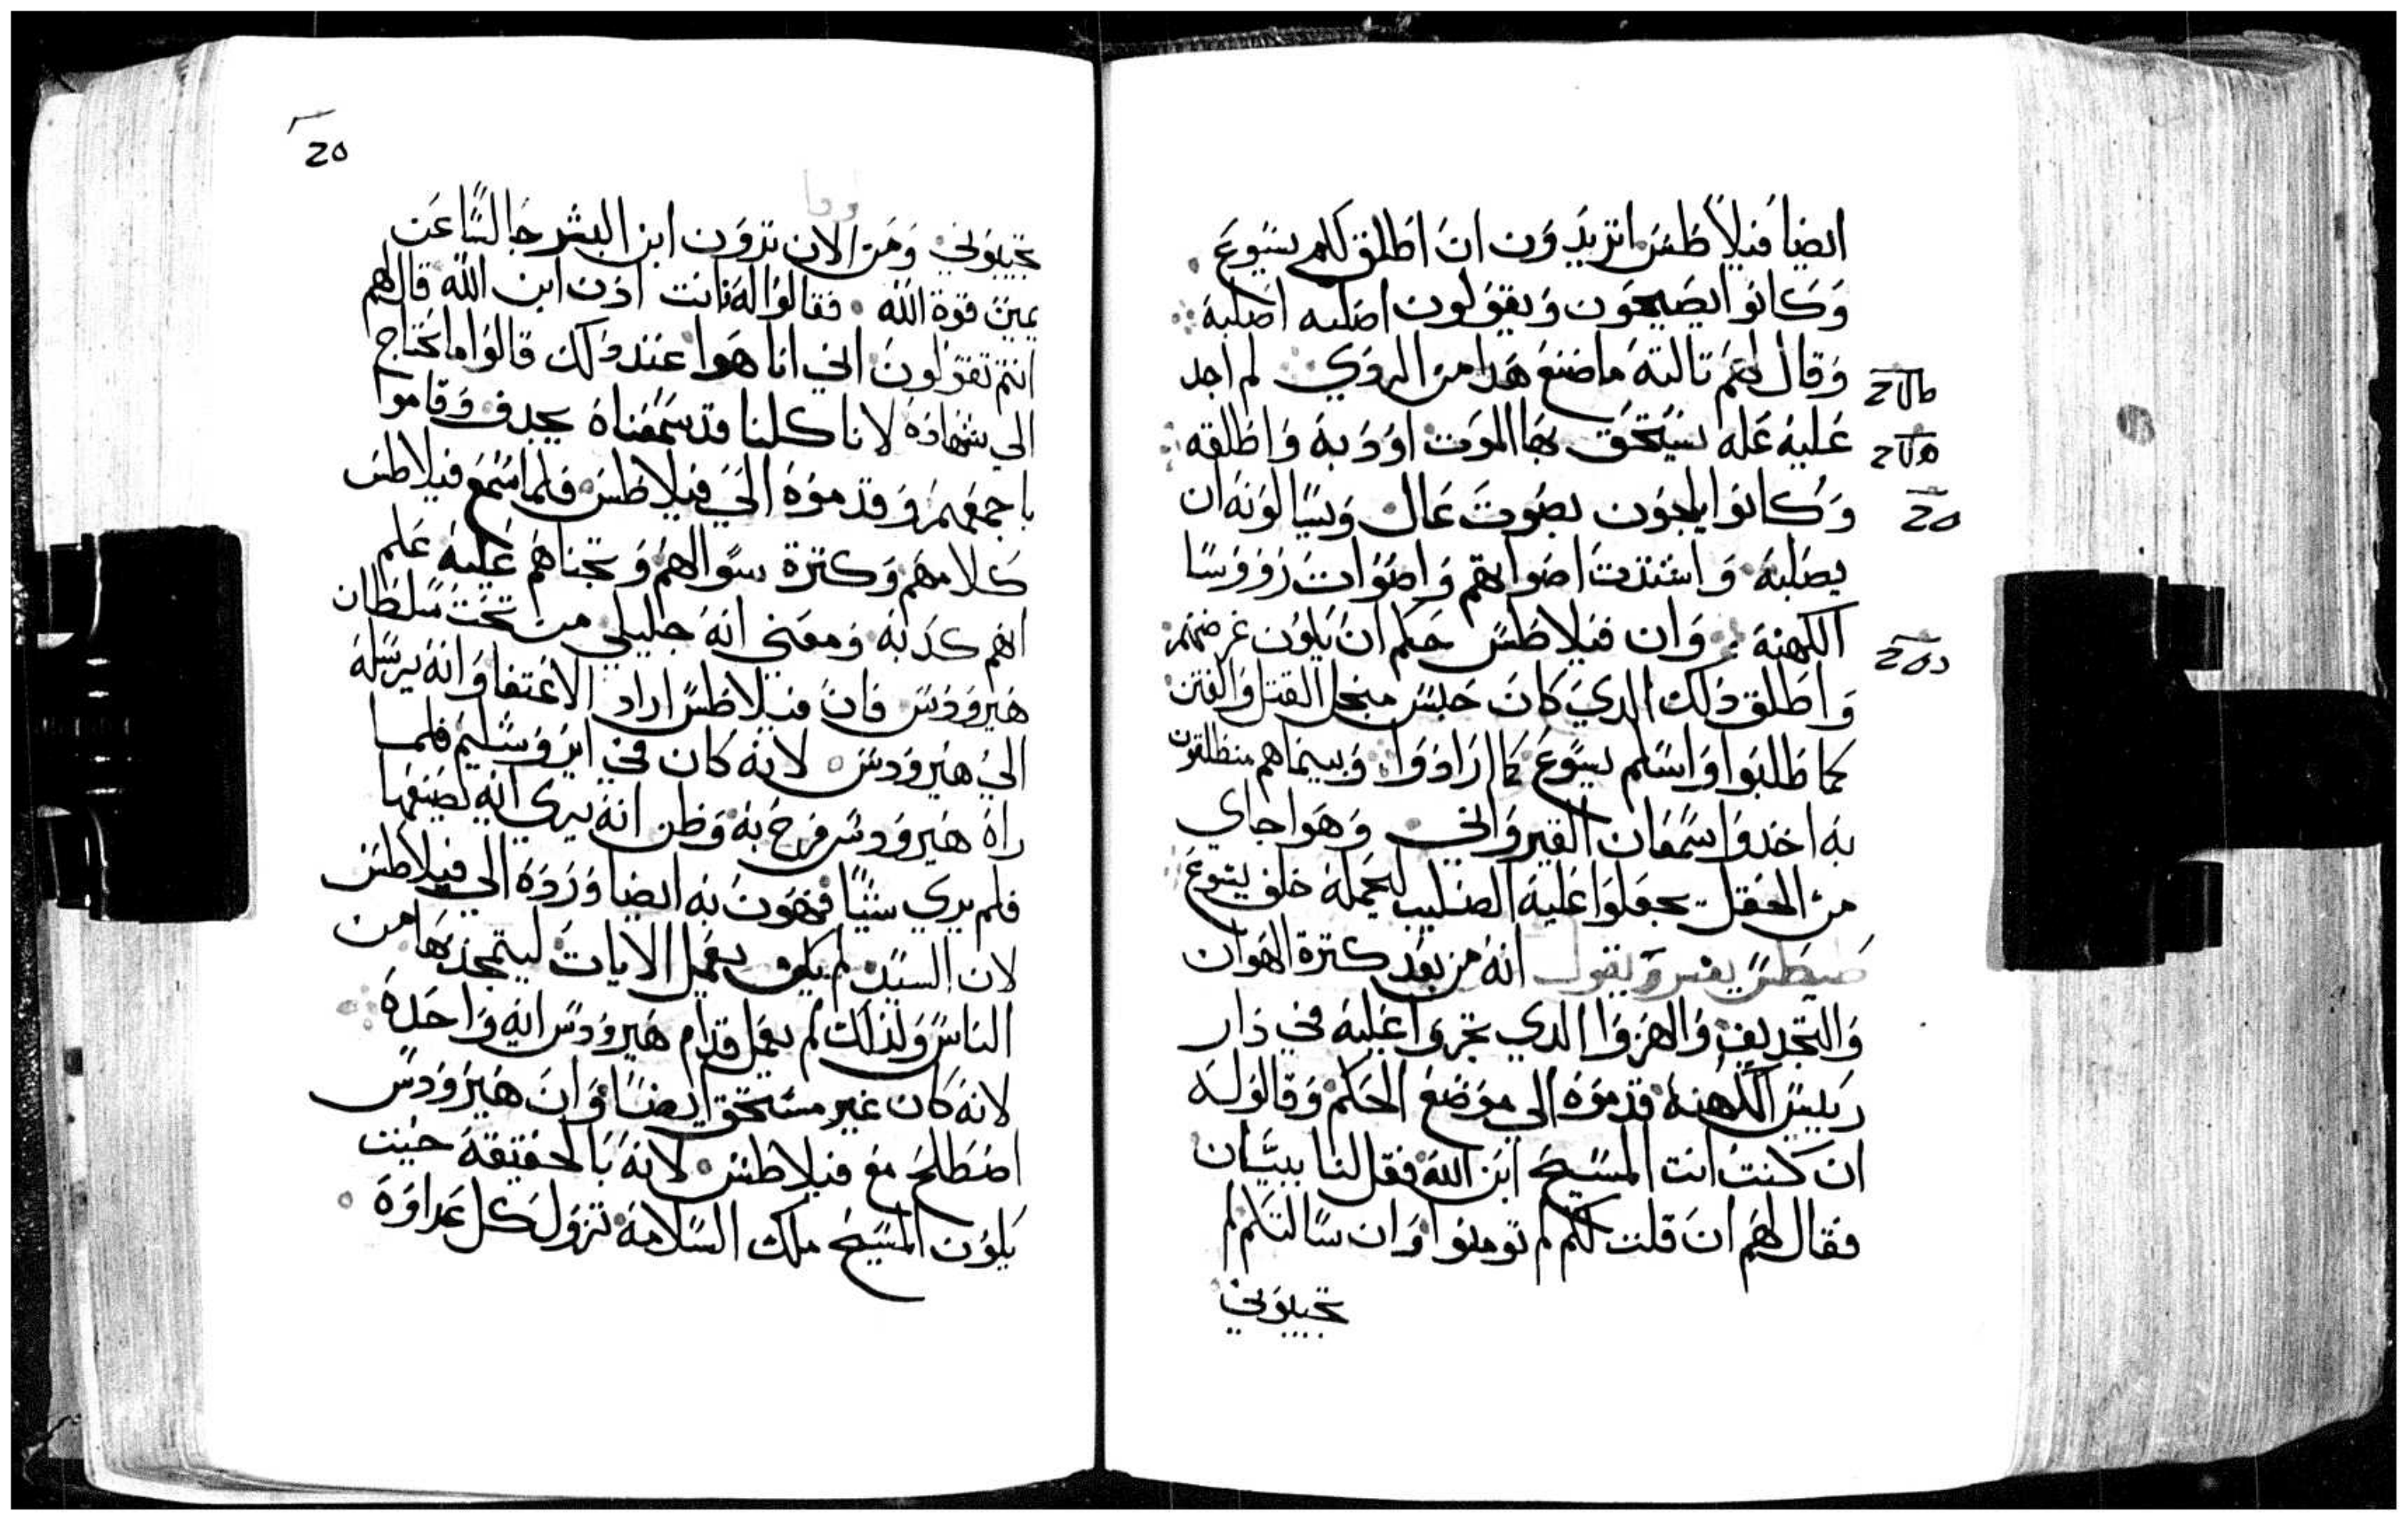 ايضا فيلاطس اتريدون ان اطلق لكم يسوع
وكانوا يصيحون ويقولون اصلبه اصلبه
وقال لهم تالته ما صنع هدا من الردي لم اجد
عليه عله يستحق بها الموت اودبه واطلقه
وكانوا يلحون بصوت عال ويسالونه ان
يصلبه واشتدت اصواتهم واصوات رووسا
الكهنة وان فيلاطس حكم ان يكون غرضهم
واطلق دلك الدي كان حبس من اجل القتل والفتن
كما طلبوا واسلم يسوع كما ارادوا وبينما هم منطلقون
به اخدوا سمعان القيرواني وهوا جاي
من الحقل جعلوا عليه الصليب ليحمله خلف يسوع
يفسر ويقول انه من بعد كترة الهوان
والتجديف والهزوا الدي تجروا عليه في دار
رييس الكهنة قدموه الي موضع الحكم وقالوله
ان كنت انت المسيح ابن الله فقل لنا ببيان
فقال لهم ان قلت لكم لم تومنوا وان سالتكم لم
تجيبوني
20
تجيبوني ومن الان ترون ابن البشر جالسا عن
يمين قوة الله فقالوا له فانت ادن ابن الله قال لهم
انتم تقولون اني انا هوا عند دلك قالوا ما نحتاج
الي شهادة لانا كلنا قد سمعناه يجدف وقاموا
باجمعهم وقدموه الي فيلاطس فلما سمع فيلاطس
كلامهم وكترة سوالهم وتجناهم عليه علم
انهم كدبه ومعني انه جليلي من تحت سلطان
هيرودس فان فيلاطس اراد الاعتفا وانه يرسله
الي هيرودس لانه كان في ايروشليم فلما
راه هيرودس فرح به وظن انه يري ايه يصنعها
فلم يري شيا فهون به ايضا ورده الي فيلاطس
لان السيد لم يكن يعمل الايات ليتمجد بها من
الناس ولدلك لم يعمل قدام هيرودس ايه واحدة
لانه كان غير مستحق ايضا وان هيرودس
اصطلح مع فيلاطس لانه بالحقيقة حيت
يكون المسيح ملك السلامة تزول كل عداوة